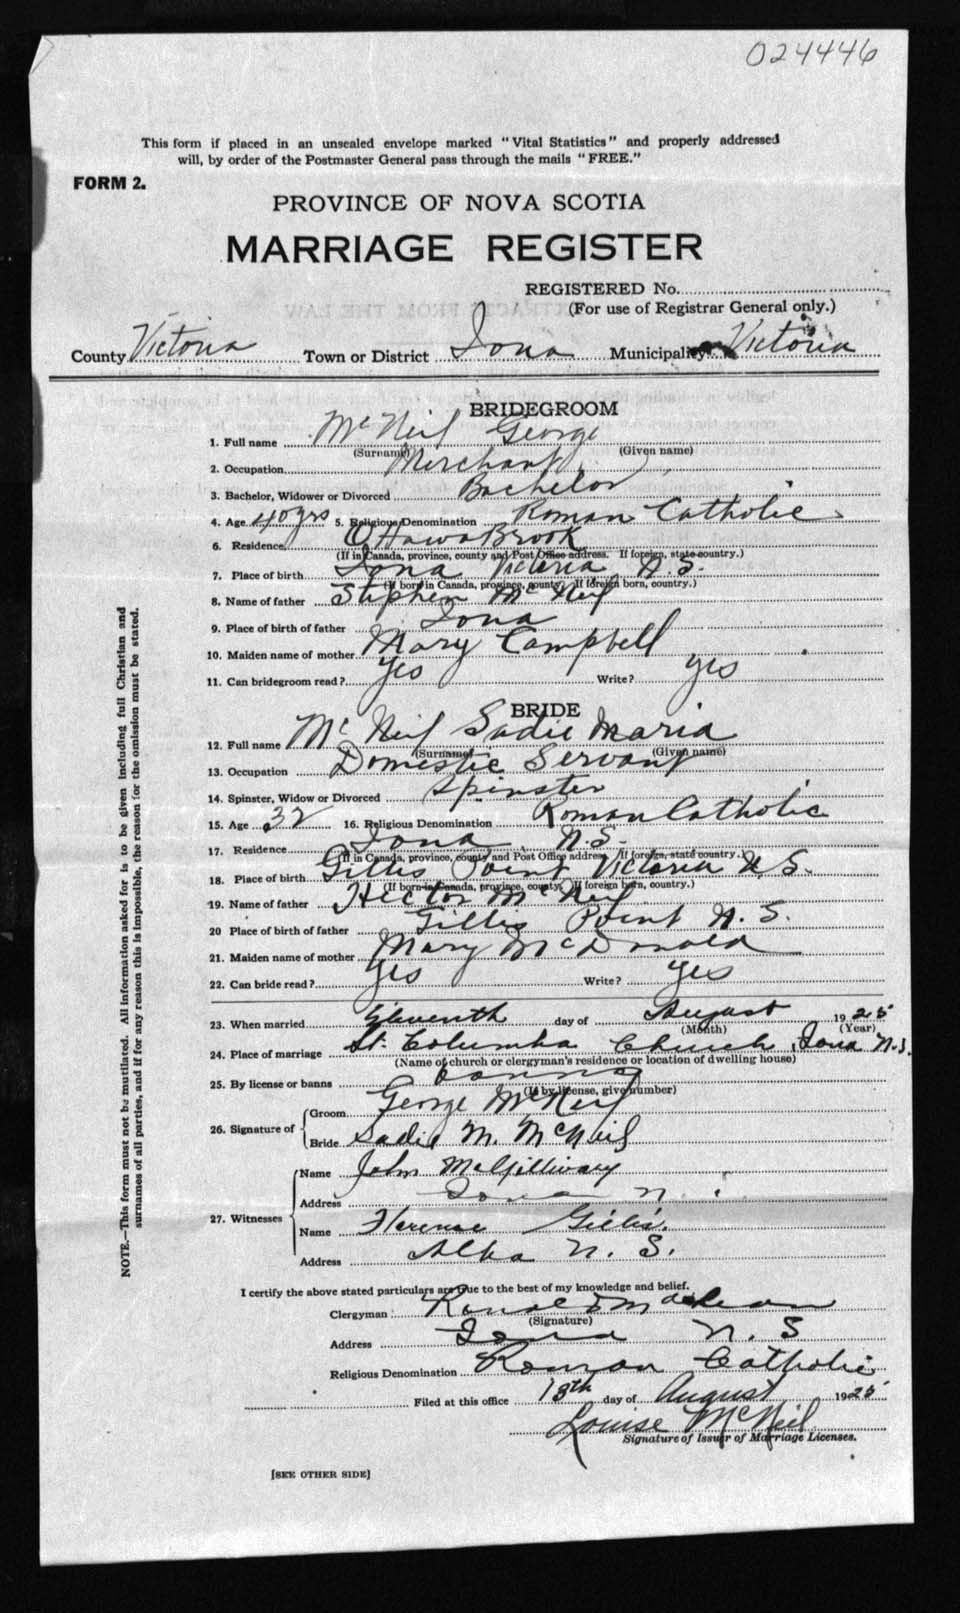 024446
This form if placed in an unsealed envelope marked "Vital Statistics" and properly addressed
will, by order of the Postmaster General pass through the mails "FREE."
FORM 2.
PROVINCE OF NOVA SCOTIA
MARRIAGE REGISTER
REGISTERED No.
(For use of Registrar General only.)
County Victoria Town or District Iona Municipality Victoria
BRIDEGROOM
1. Full name McNeil George
(Surname) (Given name)
2. Occupation Merchant
3. Bachelor, Widower or Divorced Bachelor
4. Age 40 yrs 5. Religious Denomination Roman Catholic
6. Residence Ottawa Brook
(If in Canada, province, county and Post Office address. If foreign, state country.)
7. Place of birth Iona Victoria N.S.
(If born in Canada, province, county. If foreign born, country.)
8. Name of father Stephen McNeil
9. Place of birth of father Iona
10. Maiden name of mother Mary Campbell
11. Can bridegroom read? yes Write? yes
BRIDE
12. Full name McNeil Sadie Maria
(Surname) (Given name)
13. Occupation Domestic Servant
14. Spinster, Widow or Divorced Spinster
15. Age 32 16. Religious Denomination Roman Catholic
17. Residence Iona N.S.
(If in Canada, province, county and Post Office address. If foreign, state country.)
18. Place of birth Gillis Point Victoria N.S.
(If born in Canada, province, county. If foreign born, country.)
19. Name of father Hector McNeil
20 Place of birth of father Gillis Point N.S.
21. Maiden name of mother Mary McDonald
22. Can bride read? yes Write? yes
23. When married Eleventh day of August 1925
(Month) (Year)
24. Place of marriage St. Columba Church, Iona N.S.
(Name of church or clergyman's residence or location of dwelling house)
25. By license or banns banns
(If by license, give number)
26. Signature of
Groom George McNeil
Bride Sadie M. McNeil
27. Witnesses
Name John McGillivary
Address Iona N.
Name Florence Gillis.
Address Alba N.S.
I certify the above stated particulars are true to the best of my knowledge and belief.
Clergyman: Ronald MacLean
(Signature)
Address Iona N.S
Religious Denomination Roman Catholic
Filed at this office 18th day of August 1925
Louise McNeil
Signature of Issuer of Marriage Licenses.
[SEE OTHER SIDE]
NOTE.—This form must not be mutilated. All information asked for is to be given including full Christian and
surnames of all parties, and if for any reason this is impossible, the reason for the omission must be stated.